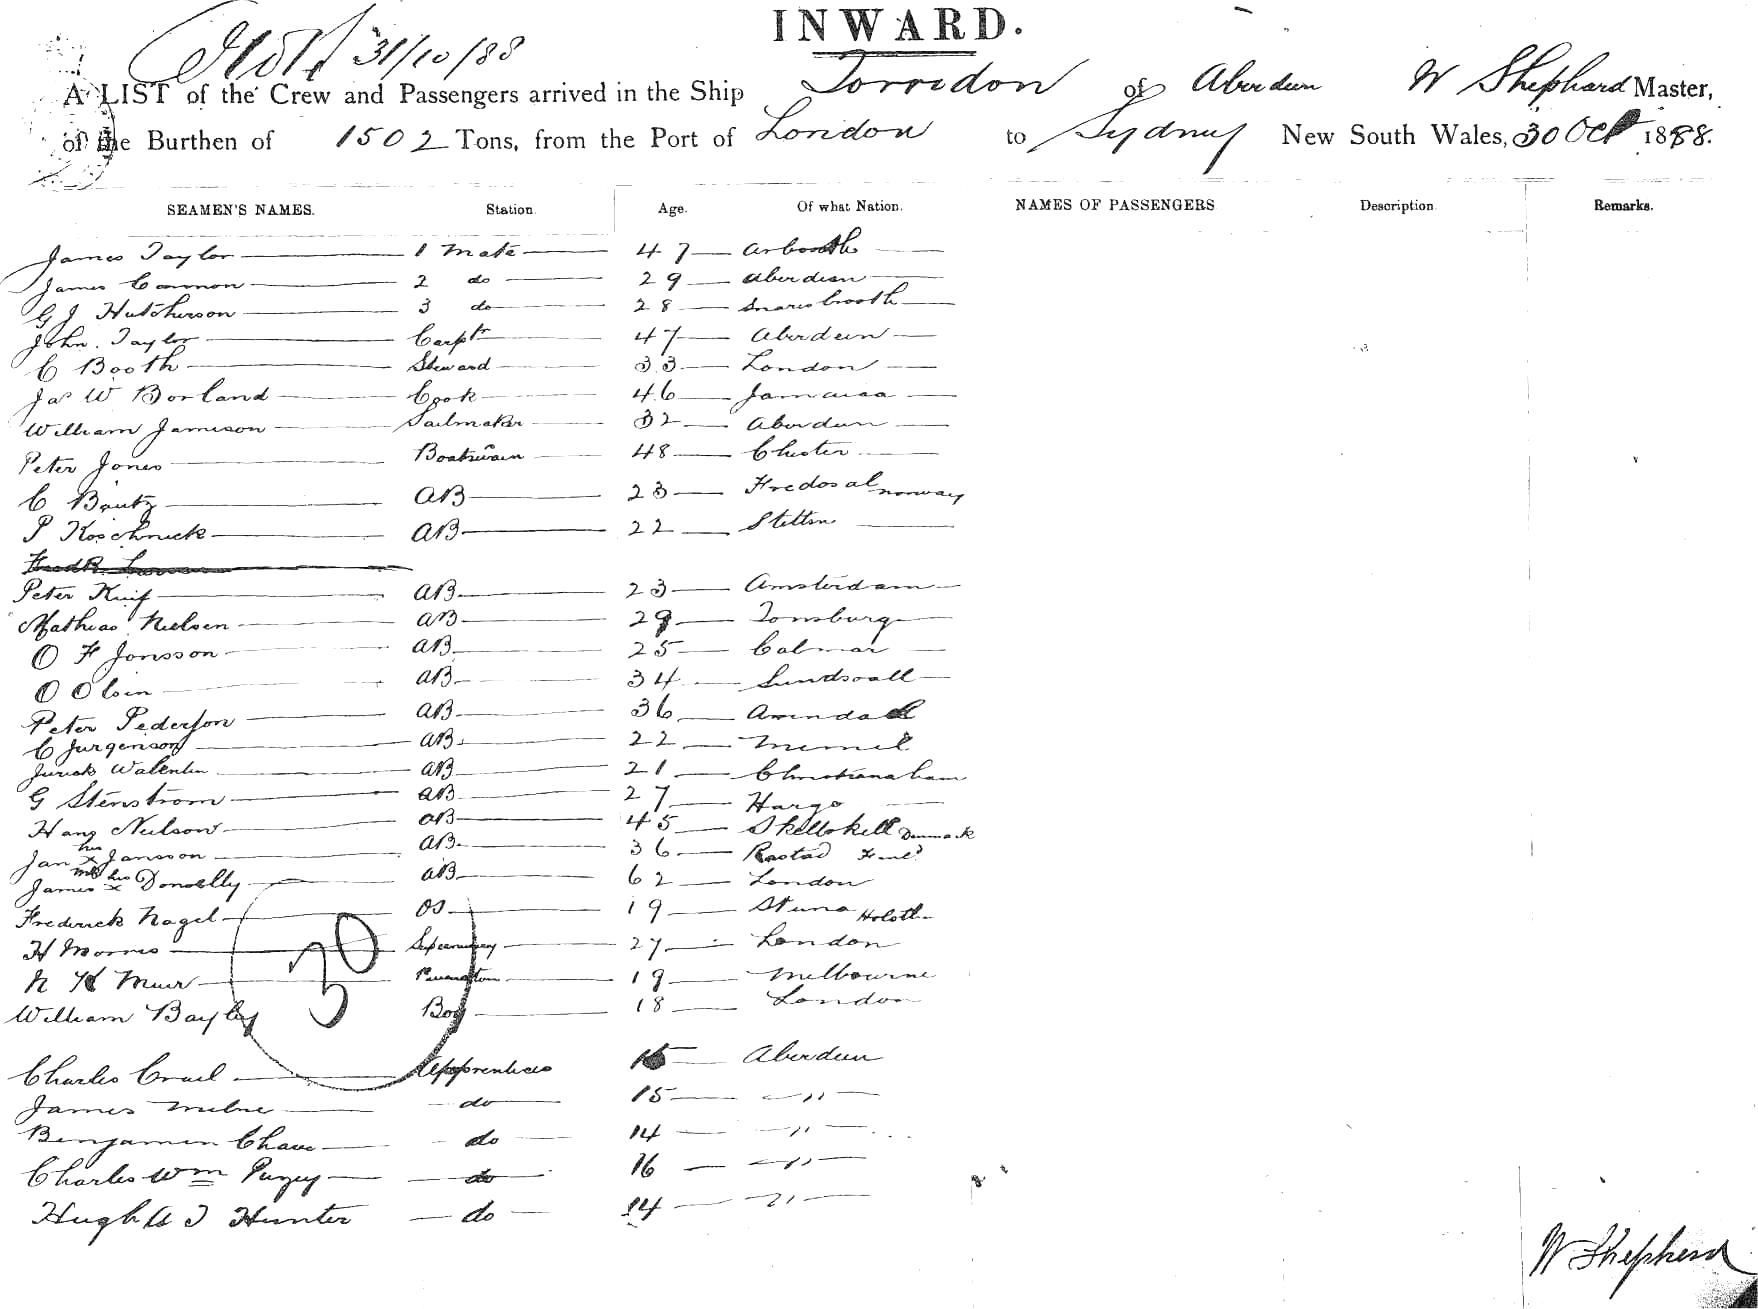 INWARD.
31/10/88
A LIST of the Crew and Passengers arrived in the Ship Torridon of Aberdeen W Shephard Master,
of the Burthen of 1502 Tons, from the Port of London to Sydney New South Wales, 30 Oct 1888.
SEAMEN'S NAMES. Station. Age. Of what Nation. NAMES OF PASSENGERS Description. Remarks.
James Taylor 1 Mate 47 Arbroath
James Cannon 2 do 29 Aberdeen
G J Hutcherson 3 do 28 Snaresbrooth
John Taylor Carptr 47 Aberdeen
C Booth Steward 33 London
Jas W Borland Cook 46 Jamaica
William Jameson Sailmaker 32 Aberdeen
Peter Jones Boatswain 48 Chester
C Bautz AB 23 Fredosal Norway
P Koschnick AB 22 Stettin
Peter Kuif AB 23 Amsterdam
Mathias Nielsen AB 29 Tonsburg
O F Jonsson AB 25 Calmar
O Olsen AB 34 Sundsvall
Peter Pederson AB 36 Arendal
C Jurgenson AB 22 Memel
Walentin AB 21 Christianaham
G Stenstrom AB 27 Hargo
Hans Neilson AB 45 Skelbskell Denmark
his
Jan x Jansson AB 36 Rastad Finld
mk his
James x Donelly AB 62 London
Frederick Nagel OS 19 Holstl
H Morris Supernumy 27 London
N H Muir 19 Melbourne
William Bayley Boy 18 London
30
Charles Crail Apprentices 15 Aberdeen
James Milne do 15 "
Benjamin Chave do 14 "
Charles Wm Puzey do 16 "
Hugh A J Hunter do 14 "
W Shepherd